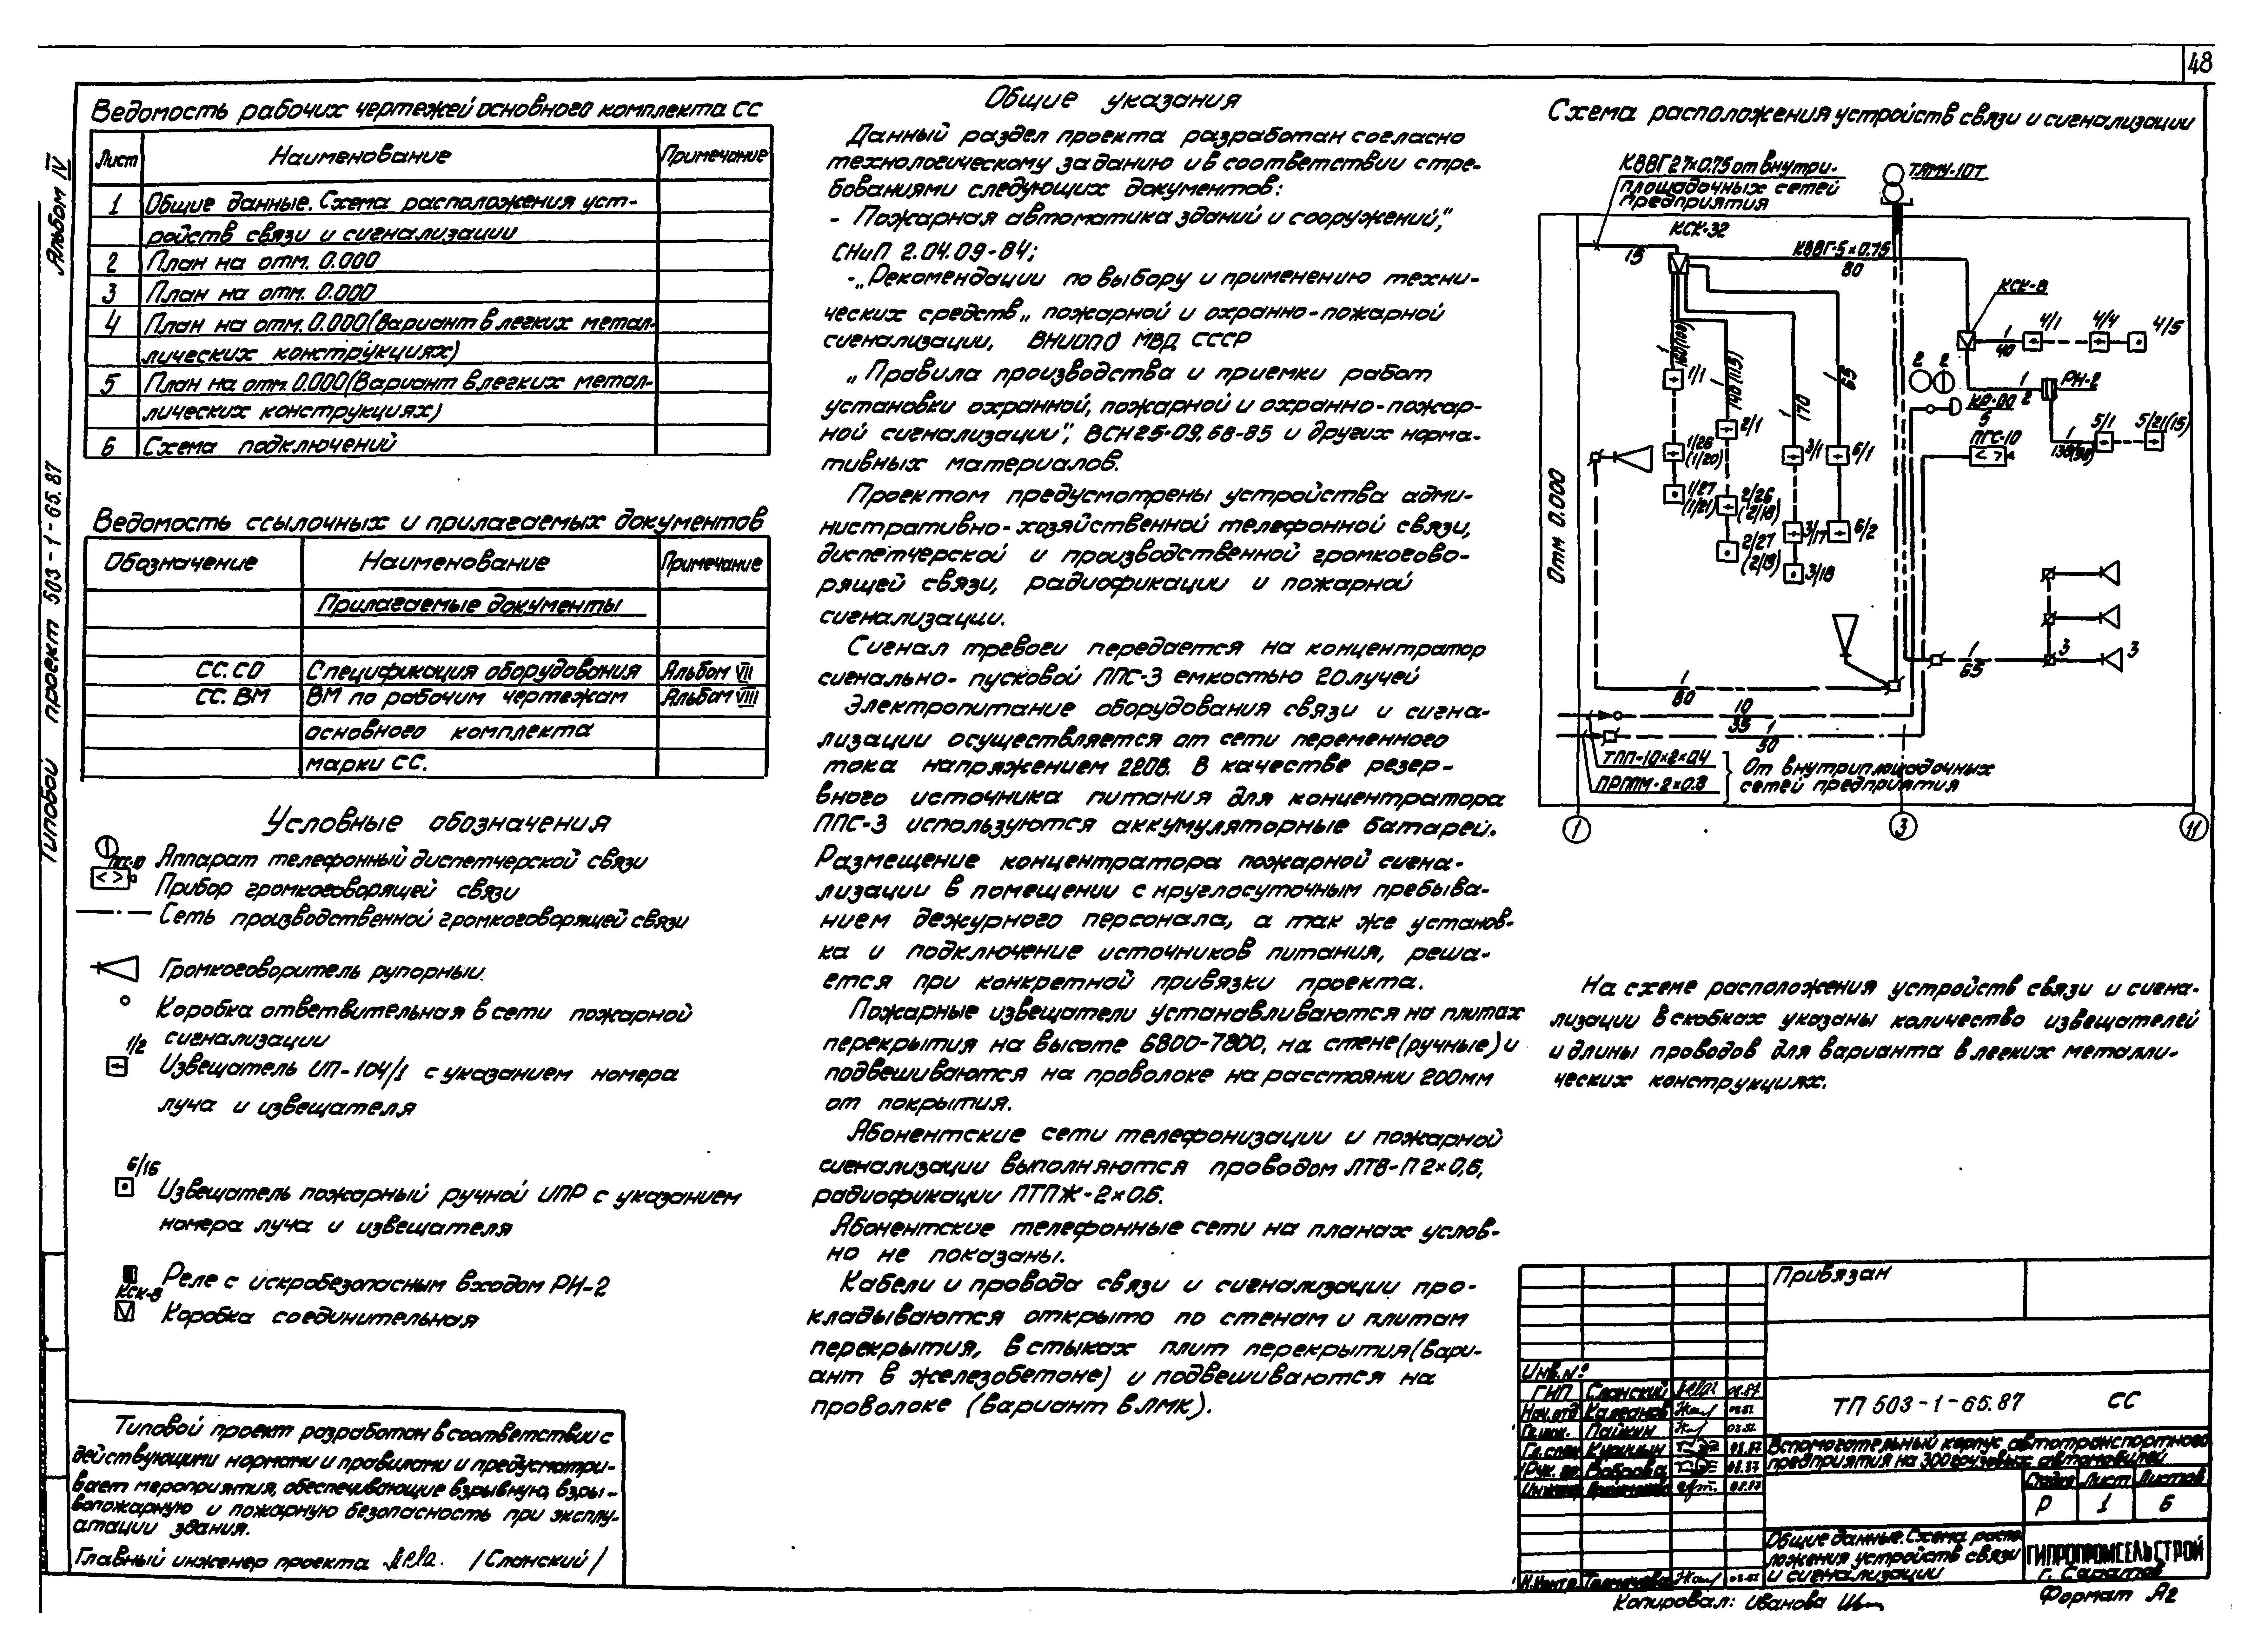 48
Альбом IV
Типовой проект 503-1-65.87
Ведомость рабочих чертежей основного комплекта СС
Лист Наименование Примечание
1 Общие данные. Схема расположения уст-
ройств связи и сигнализации
2 План на отм. 0.000
3 План на отм. 0.000
4 План на отм. 0.000 (Вариант в легких метал-
лических конструкциях)
5 План на отм. 0.000 (Вариант в легких метал-
лических конструкциях)
6 Схема подключений
Ведомость ссылочных и прилагаемых документов
Обозначение Наименование Примечание
Прилагаемые документы
СС.СО Спецификация оборудования Альбом VII
СС.ВМ ВМ по рабочим чертежам Альбом VIII
основного комплекта
марки СС.
Условные обозначения
Аппарат телефонный диспетчерской связи
ПГС-10
Прибор громкоговорящей связи
Сеть производственной громкоговорящей связи
Громкоговоритель рупорный.
Коробка ответвительная в сети пожарной
сигнализации
1/2
Извещатель ИП-104/1 с указанием номера
луча и извещателя
6/16
Извещатель пожарный ручной ИПР с указанием
номера луча и извещателя
Реле с искробезопасным входом РИ-2
КСК-8
Коробка соединительная
Типовой проект разработан в соответствии с
действующими нормами и правилами и предусматри-
вает мероприятия, обеспечивающие взрывную, взры-
вопожарную и пожарную безопасность при эксплу-
атации здания.
Главный инженер проекта /Слонский/
Общие указания
Данный раздел проекта разработан согласно
технологическому заданию и в соответствии с тре-
бованиями следующих документов:
- Пожарная автоматика зданий и сооружений,"
СНиП 2.04.09-84;
-„Рекомендации по выбору и применению техни-
ческих средств„ пожарной и охранно-пожарной
сигнализации, ВНИИПО МВД СССР
„Правила производства и приемки работ
установки охранной, пожарной и охранно-пожар-
ной сигнализации", ВСН 25-09.68-85 и других норма-
тивных материалов.
Проектом предусмотрены устройства адми-
нистративно-хозяйственной телефонной связи,
диспетчерской и производственной громкогово-
рящей связи, радиофикации и пожарной
сигнализации.
Сигнал тревоги передается на концентратор
сигнально-пусковой ППС-3 емкостью 20 лучей
Электропитание оборудования связи и сигна-
лизации осуществляется от сети переменного
тока напряжением 220В. В качестве резер-
вного источника питания для концентратора
ППС-3 используются аккумуляторные батарей.
Размещение концентратора пожарной сигна-
лизации в помещении с круглосуточным пребыва-
нием дежурного персонала, а так же установ-
ка и подключение источников питания, реша-
ется при конкретной привязки проекта.
Пожарные извещатели устанавливаются на плитах
перекрытия на высоте 6800-7800, на стене (ручные) и
подвешиваются на проволоке на расстоянии 200мм
от покрытия.
Абонентские сети телефонизации и пожарной
сигнализации выполняются проводом ЛТВ-П 2×0,6,
радиофикации ПТПЖ-2×0.6.
Абонентские телефонные сети на планах услов-
но не показаны.
Кабели и провода связи и сигнализации про-
кладываются открыто по стенам и плитам
перекрытия, в стыках плит перекрытия (вари-
ант в железобетоне) и подвешиваются на
проволоке (вариант в ЛМК).
Схема расположения устройств связи и сигнализации
КВВГ 27×0.75 от внутри-
площадочных сетей
предприятия
ТАМУ-10Т
КСК-32
15
КВВГ-5×0.75
80
КСК-8
1
40
4/1 4/4 4/5
1/1
2 2
1
2
РИ-2
КР-00
5
ПГС-10
5/1 5/21(15)
1
1
170
65
2/1
1/26
(1/20)
3/1 6/1
1/27
(1/21)
2/26
(2/18)
3/17 6/2
2/27
(2/19)
3/18
Отм 0.000
3 3
1
65
1
80
10
35
1
50
ТПП-10×2×0.4
ПРППМ-2×0.8
От внутриплощадочных
сетей предприятия
1 3 11
На схеме расположения устройств связи и сигна-
лизации в скобках указаны количество извещателей
и длины проводов для варианта в легких металли-
ческих конструкциях.
Привязан
Инв.№
ГИП Слонский 08.87
Нач.отд
Гл.инж. Пайкин
Гл.спец 08.87
Рук. гр. Боброва 08.87
Инженер 08.87
Н.контр
ТП 503-1-65.87 СС
Вспомогательный корпус автотранспортного
предприятия на 300 грузовых автомобилей
Стадия Лист Листов
Р 1 6
Общие данные. Схема распо-
ложения устройств связи
и сигнализации
ГИПРОПРОМСЕЛЬСТРОЙ
г. Саратов
Копировал: Иванова
Формат А2